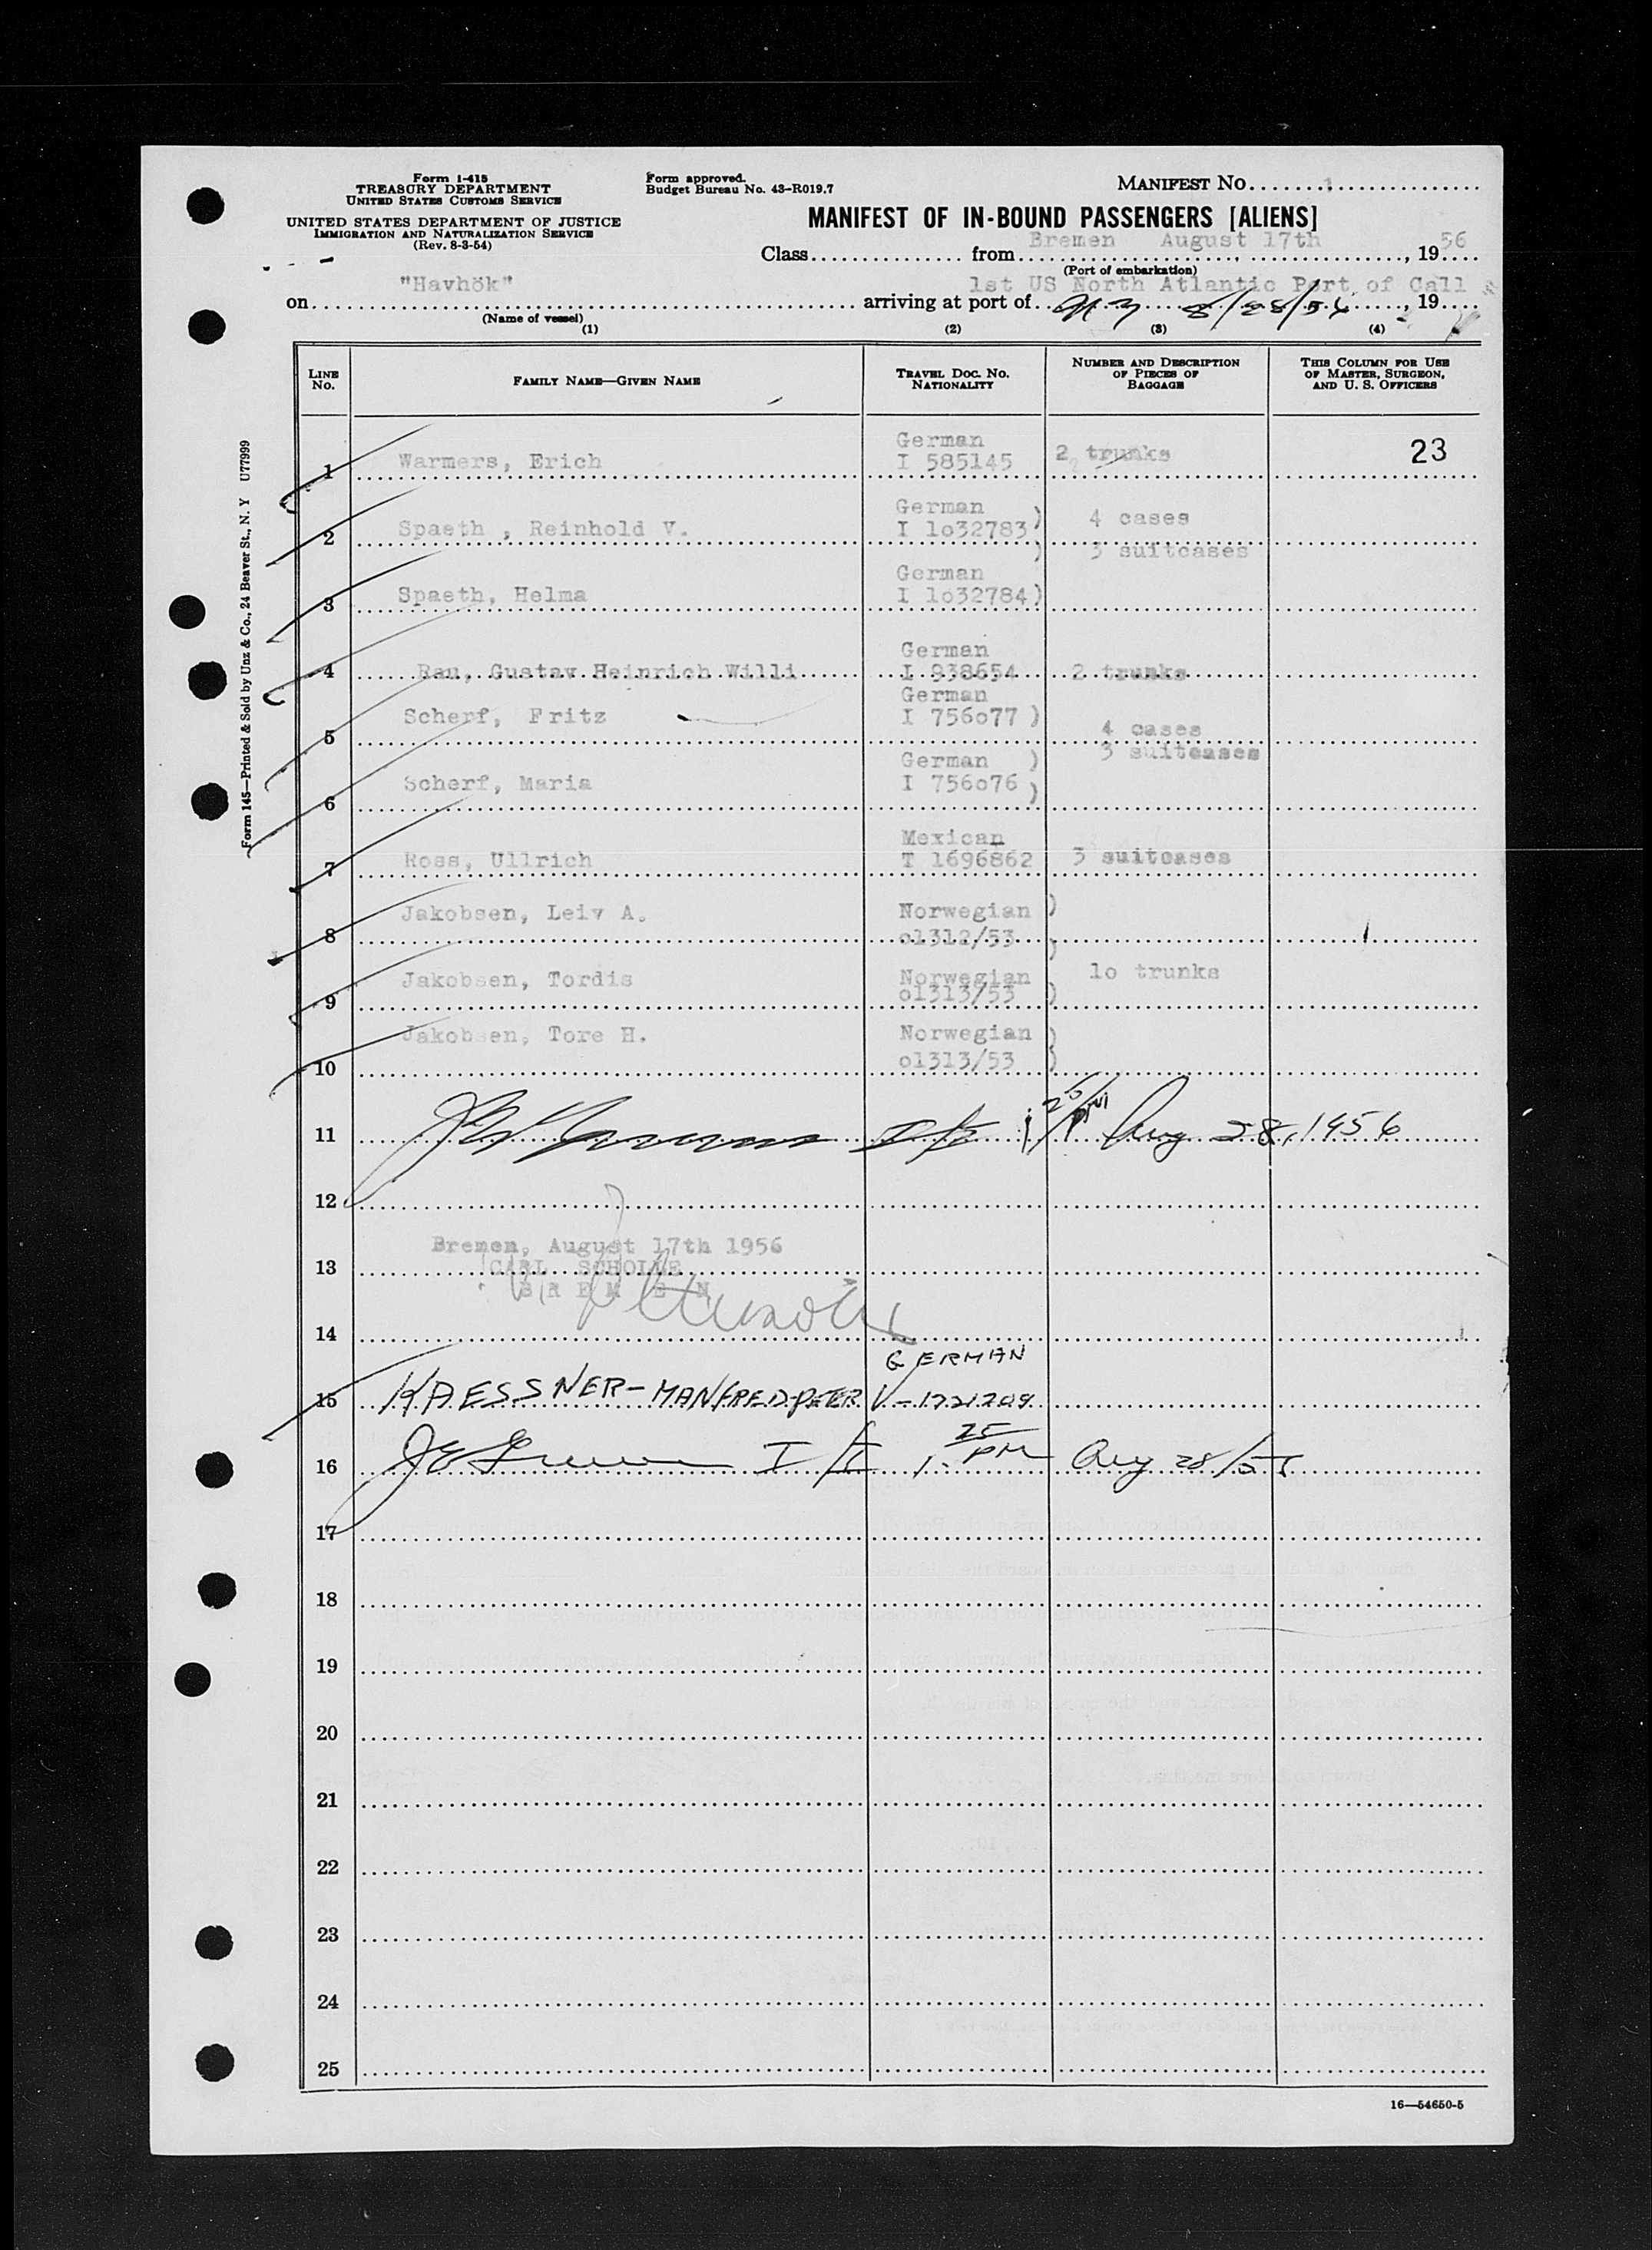 Form I-415
TREASURY DEPARTMENT
UNITED STATES CUSTOMS SERVICE
UNITED STATES DEPARTMENT OF JUSTICE
IMMIGRATION AND NATURALIZATION SERVICE
(Rev. 8-3-54)
Form approved.
Budget Bureau No. 43-R019.7
MANIFEST No. 1
MANIFEST OF IN-BOUND PASSENGERS [ALIENS]
Class from Bremen August 17th, 1956
(Port of embarkation)
on "Havhök" arriving at port of 1st US North Atlantic Port of Call &
NY 8/28/56, 19
(Name of vessel)
(1) (2) (3) (4)
LINE No. FAMILY NAME—GIVEN NAME TRAVEL DOC. NO. NATIONALITY NUMBER AND DESCRIPTION OF PIECES OF BAGGAGE THIS COLUMN FOR USE OF MASTER, SURGEON, AND U. S. OFFICERS
1 Warmers, Erich German I 585145 2 trunks 23
2 Spaeth , Reinhold V. German I 1o32783) 4 cases
) 3 suitcases
3 Spaeth, Helma German I 1o32784)
4 Rau, Gustav Heinrich Willi German I 938654 2 trunks
5 Scherf, Fritz German I 756o77 ) 4 cases
3 suitcases
6 Scherf, Maria German ) I 756o76 )
7 Ross, Ullrich Mexican T 1696862 3 suitcases
8 Jakobsen, Leiv A. Norwegian ) o1312/53 )
9 Jakobsen, Tordis Norwegian o1313/53 ) 1o trunks
10 Jakobsen, Tore H. Norwegian ) o1313/53 )
11 Aug 28, 1956
12
Bremen, August 17th 1956
13 CARL SCHOLLE
BREMEN
14
15 KAESSNER-MANFRED-PETER GERMAN V-1721209
16 1 25 PM Aug 28/56
17
18
19
20
21
22
23
24
25
16—54650-5
Form 145—Printed & Sold by Unz & Co., 24 Beaver St., N. Y U77999